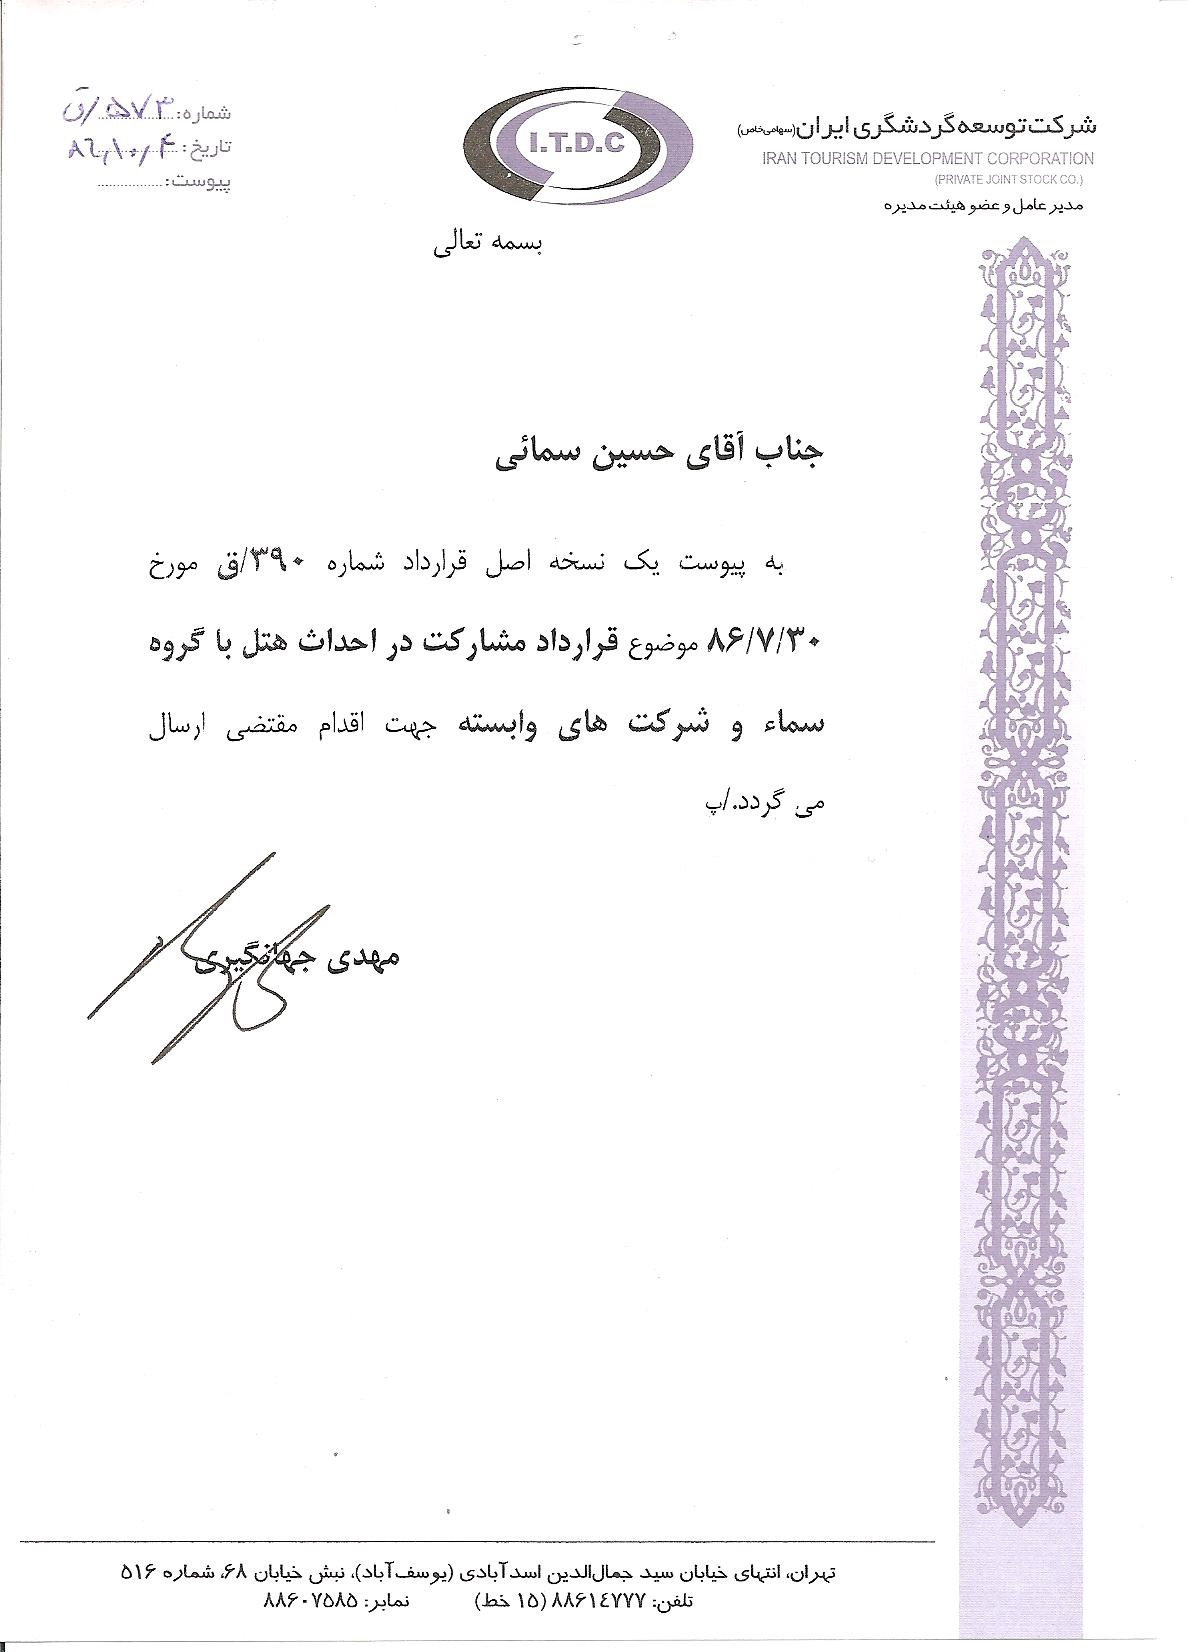 شرکت توسعه گردشگری ایران (سهامی خاص)
IRAN TOURISM DEVELOPMENT CORPORATION
(PRIVATE JOINT STOCK CO.)
مدیر عامل و عضو هیئت مدیره
I.T.D.C
شماره: ۵۷۳/ق
تاریخ: ۸۶,۱۰,۴
پیوست:
بسمه تعالی
جناب آقای حسین سمائی
به پیوست یک نسخه اصل قرارداد شماره ۳۹۰/ق مورخ
۸۶/۷/۳۰ موضوع قرارداد مشارکت در احداث هتل با گروه
سماء و شرکت های وابسته جهت اقدام مقتضی ارسال
می گردد./پ
مهدی جهانگیری
تهران، انتهای خیابان سید جمال‌الدین اسدآبادی (یوسف‌آباد)، نبش خیابان ۶۸، شماره ۵۱۶
تلفن: ۸۸۶۱٤۷۷۷ (۱۵ خط) نمابر: ۸۸۶۰۷۵۸۵